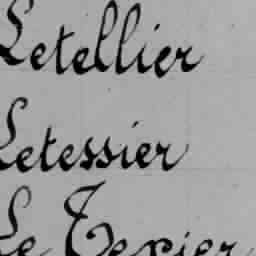 Letellier
Letessier
Le Texier